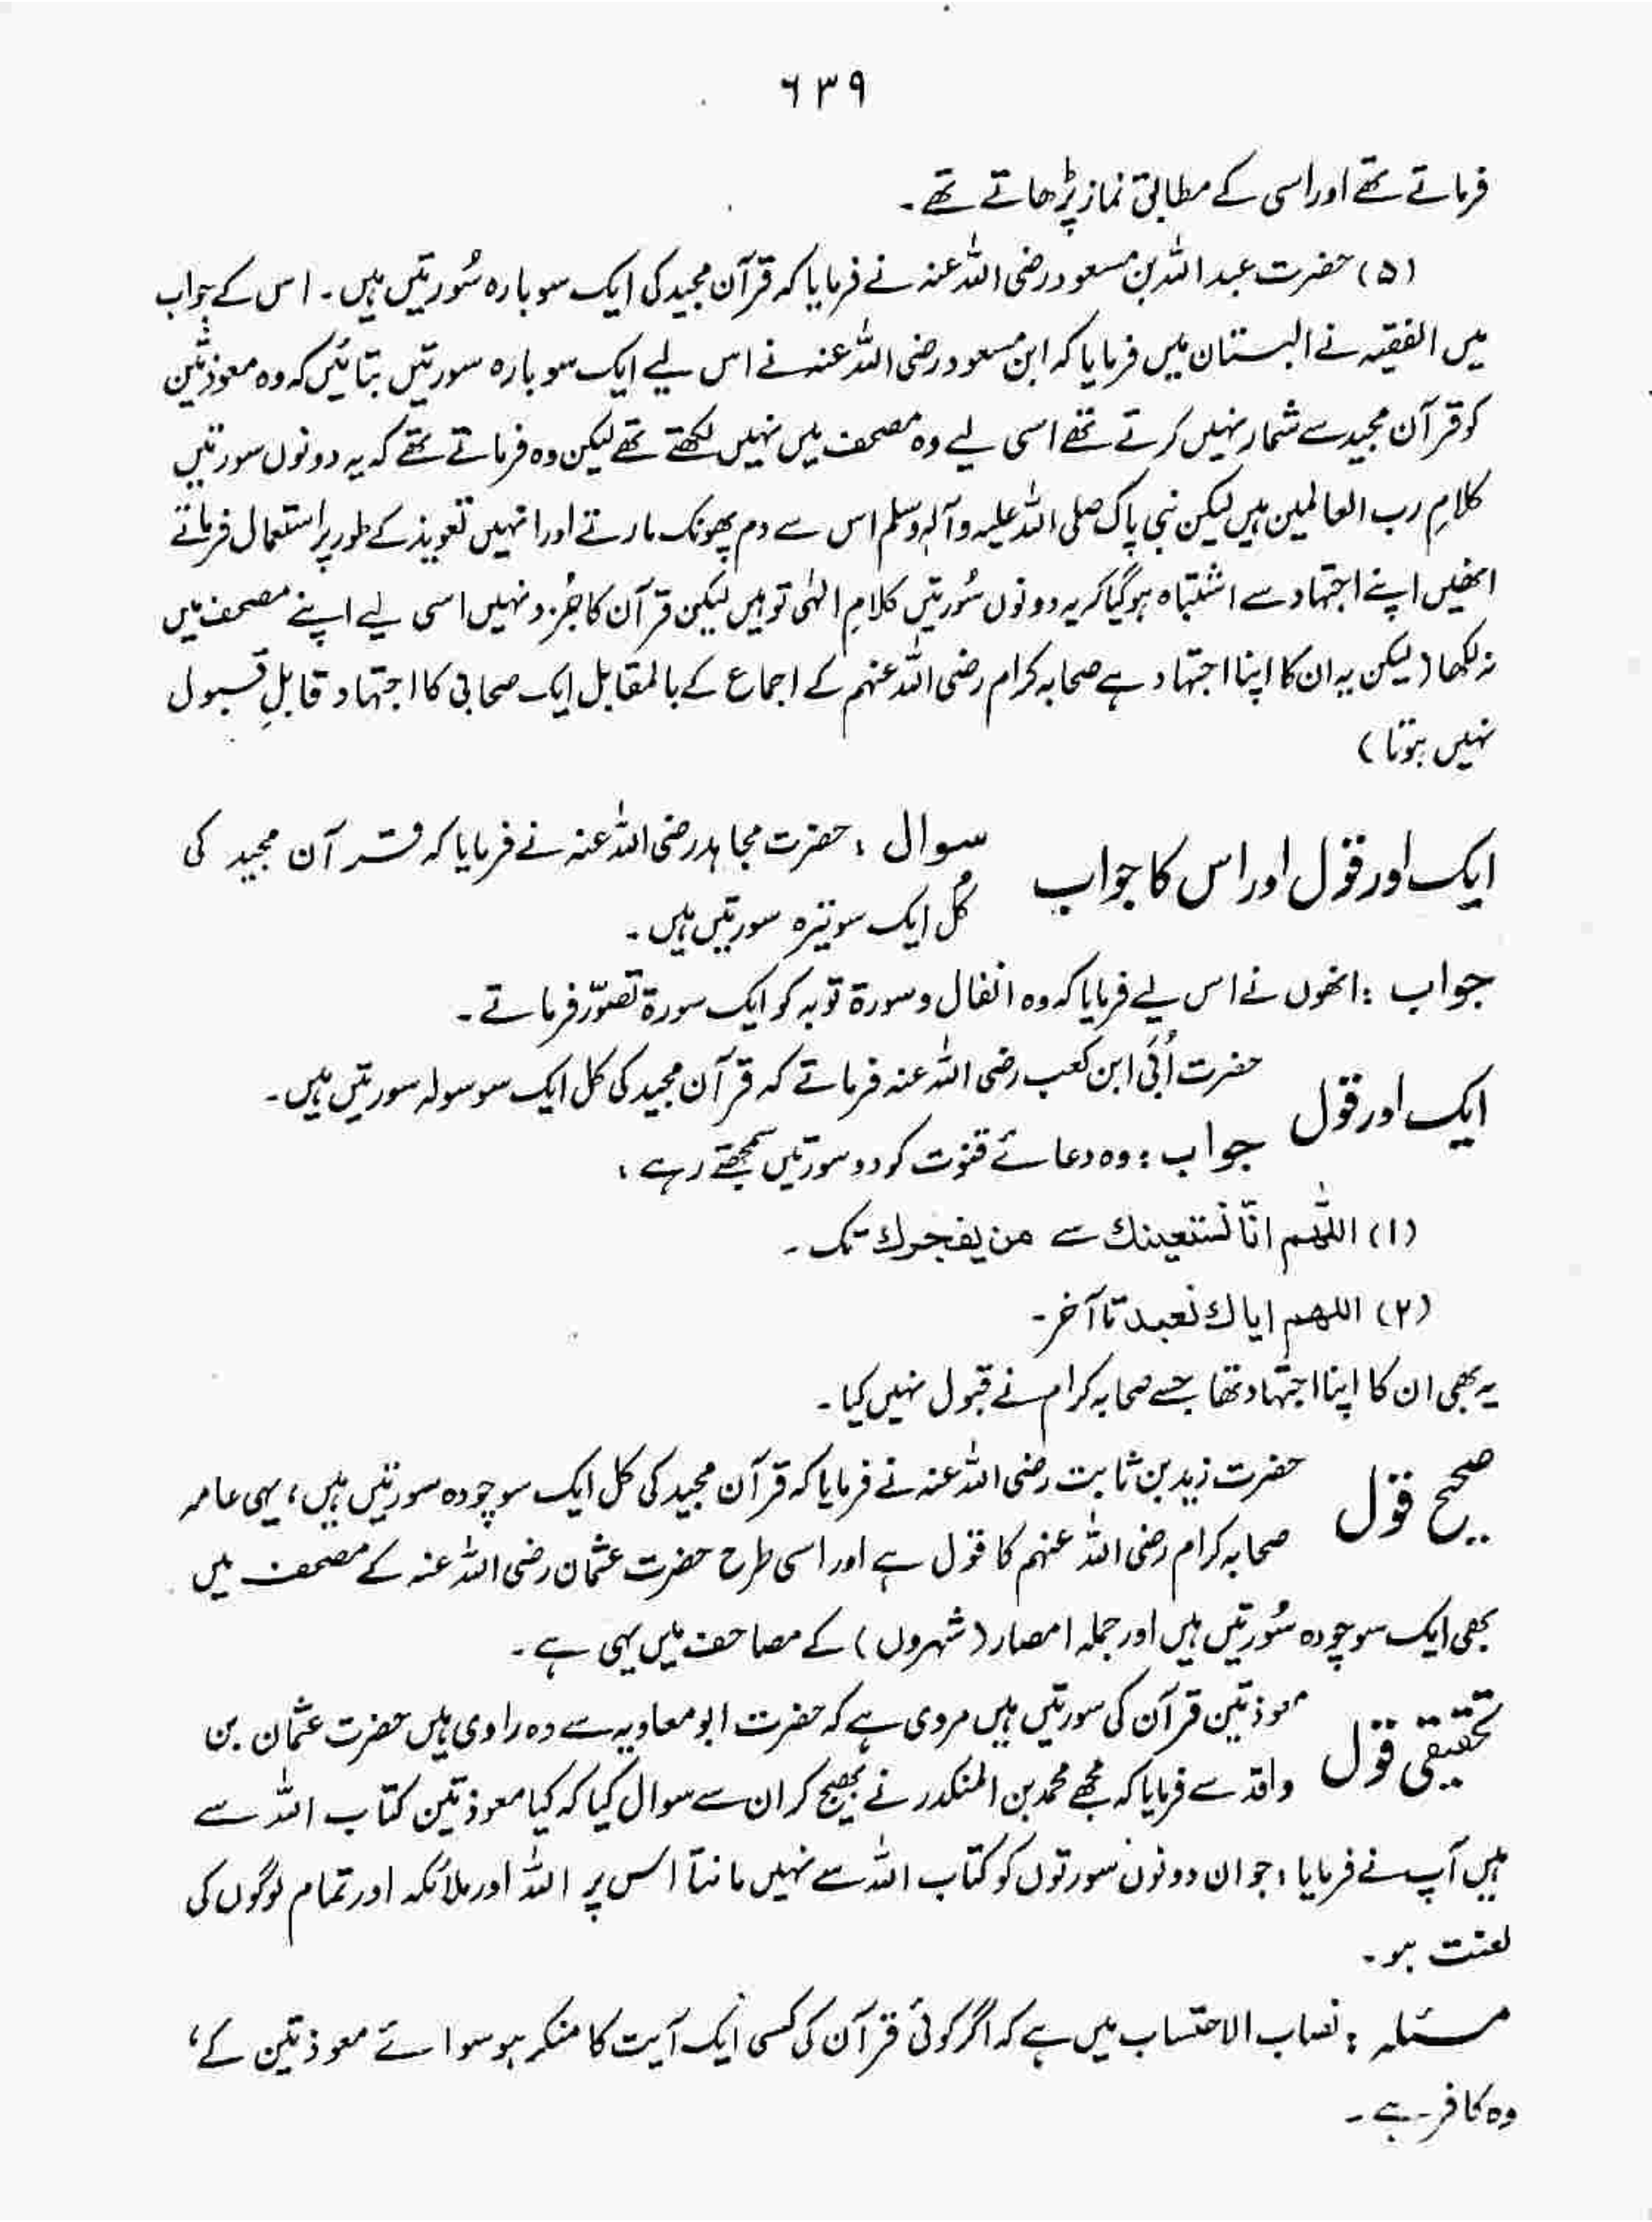 ٦٣٩
فرماتے تھے اور اسی کے مطابق نماز پڑھاتے تھے۔
(۵) حضرت عبد اللہ بن مسعود رضی اللہ عنہ نے فرمایا کہ قرآن مجید کی ایک سو بارہ سُورتیں ہیں۔ اس کے جواب
میں الفقیہ نے البستان میں فرمایا کہ ابن مسعود رضی اللہ عنہ نے اس لیے ایک سو بارہ سورتیں بتائیں کہ وہ معوذتین
کو قرآن مجید سے شمار نہیں کرتے تھے اسی لیے وہ مصحف میں نہیں لکھتے تھے لیکن وہ فرماتے تھے کہ یہ دونوں سورتیں
کلامِ رب العالمین ہیں لیکن نبی پاک صلی اللہ علیہ وآلہٖ وسلم اس سے دم پھونک مارتے اور انہیں تعویذ کے طور پر استعمال فرماتے
انھیں اپنے اجتہاد سے اشتباہ ہوگیا کہ یہ دونوں سُورتیں کلامِ الٰہی تو ہیں لیکن قرآن کا جُزو نہیں اسی لیے اپنے مصحف میں
نہ لکھا (لیکن یہ ان کا اپنا اجتہاد ہے صحابہ کرام رضی اللہ عنہم کے اجماع کے بالمقابل ایک صحابی کا اجتہاد قابلِ قبول
نہیں ہوتا)
ایک اور قول اور اس کا جواب سوال : حضرت مجاہد رضی اللہ عنہ نے فرمایا کہ قرآن مجید کی
کُل ایک سو تیرہ سورتیں ہیں۔
جواب : انھوں نے اس لیے فرمایا کہ وہ انفال و سورۃ توبہ کو ایک سورۃ تصوّر فرماتے۔
ایک اور قول حضرت اُبَی ابن کعب رضی اللہ عنہ فرماتے کہ قرآن مجید کی کل ایک سو سولہ سورتیں ہیں۔
جواب : وہ دعائے قنوت کو دو سورتیں سمجھتے رہے :
(۱) اللّٰھم انّا نستعینك سے من یفجرك تک۔
(۲) اللھم ایاك نعبد تا آخر۔
یہ بھی ان کا اپنا اجتہاد تھا جسے صحابہ کرام نے قبول نہیں کیا۔
صحیح قول حضرت زید بن ثابت رضی اللہ عنہ نے فرمایا کہ قرآن مجید کی کل ایک سو چودہ سورتیں ہیں، یہی عامہ
صحابہ کرام رضی اللہ عنہم کا قول ہے اور اسی طرح حضرت عثمان رضی اللہ عنہ کے مصحف میں
بھی ایک سو چودہ سُورتیں ہیں اور جملہ امصار (شہروں) کے مصاحف میں یہی ہے۔
تحقیقی قول معوذتین قرآن کی سورتیں ہیں مروی ہے کہ حضرت ابو معاویہ سے وہ راوی ہیں حضرت عثمان بن
واقد سے فرمایا کہ مجھے محمد بن المنکدر نے بھیج کر ان سے سوال کیا کہ کیا معوذتین کتاب اللہ سے
ہیں آپ نے فرمایا : جو ان دونوں سورتوں کو کتاب اللہ سے نہیں مانتا اس پر اللہ اور ملائکہ اور تمام لوگوں کی
لعنت ہو۔
مسئلہ : نصاب الاحتساب میں ہے کہ اگر کوئی قرآن کی کسی ایک آیت کا منکر ہو سوائے معوذتین کے،
وہ کافر ہے۔